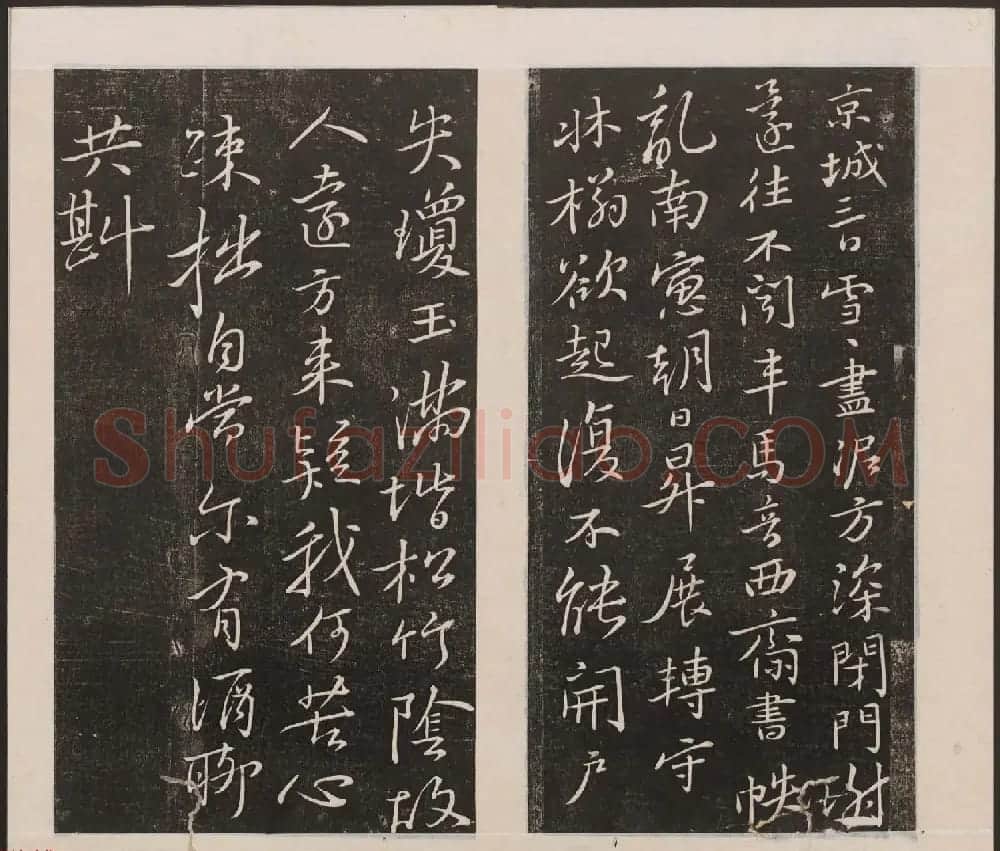 京城三日雪、盡泥方深閉門謝
還往不聞車馬音西齋書帙
亂南窻朝日昇展轉守
牀榻欲起復不能開戶
失瓊玉滿堦松竹陰故
人遠方來疑我何苦心
疎拙自當尔有酒聊
共斟
Shufaziliao.COM